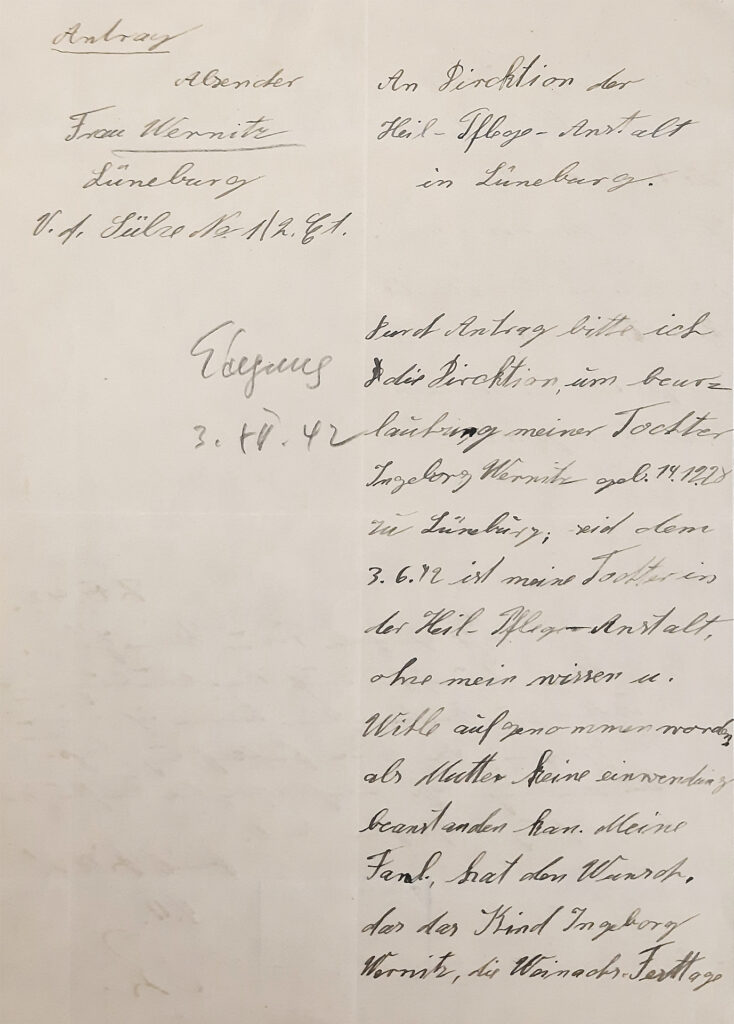 Antrag
Absender
Frau Wernitz
Lüneburg
V. d. Sülze No 1/2. Et.
An Dircktion der
Heil- Pflege- Anstalt
in Lüneburg.
3. XII. 42
Durch Antrag bitte ich
die Dircktion, um beur=
laubung meiner Tochter
Ingeborg Wernitz geb.
zu Lüneburg; seid dem
3. 6. 42 ist meine Tochter in
der Heil- Pflege- Anstalt,
ohne mein wissen u.
Wille aufgenommen worden
als Mutter keine einwendung
beanstanden kan. Meine
Faml., hat den Wunsch,
das das Kind Ingeborg
Wernitz, die Weinachs-Festtage